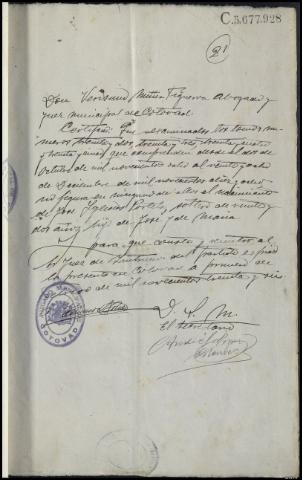 C.5.677.928
21
Don Venisano Muñoz Figueroa Abogado y
Juez municipal de Cotovad.
Certifico: Que examinados los tomos nú-
meros treinta y dos, treinta y tres, treinta y cuatro
y treinta y cinco que comprenden desde el dos de
Octubre de mil novecientos ocho al veinte y ocho
de Diciembre de mil novecientos diez y ocho
no figura en ninguno de ellos el nacimiento
de José Iglesias soltero de veinte y
dos años hijo de José y de María
Y para que conste y remitir al
Sr Juez de Instrucción del partido expido
la presente en Cotovad a primero de
de mil novecientos treinta y seis
D. S. M.
El Secretario
JUZGADO MUNICIPAL
COTOVAD